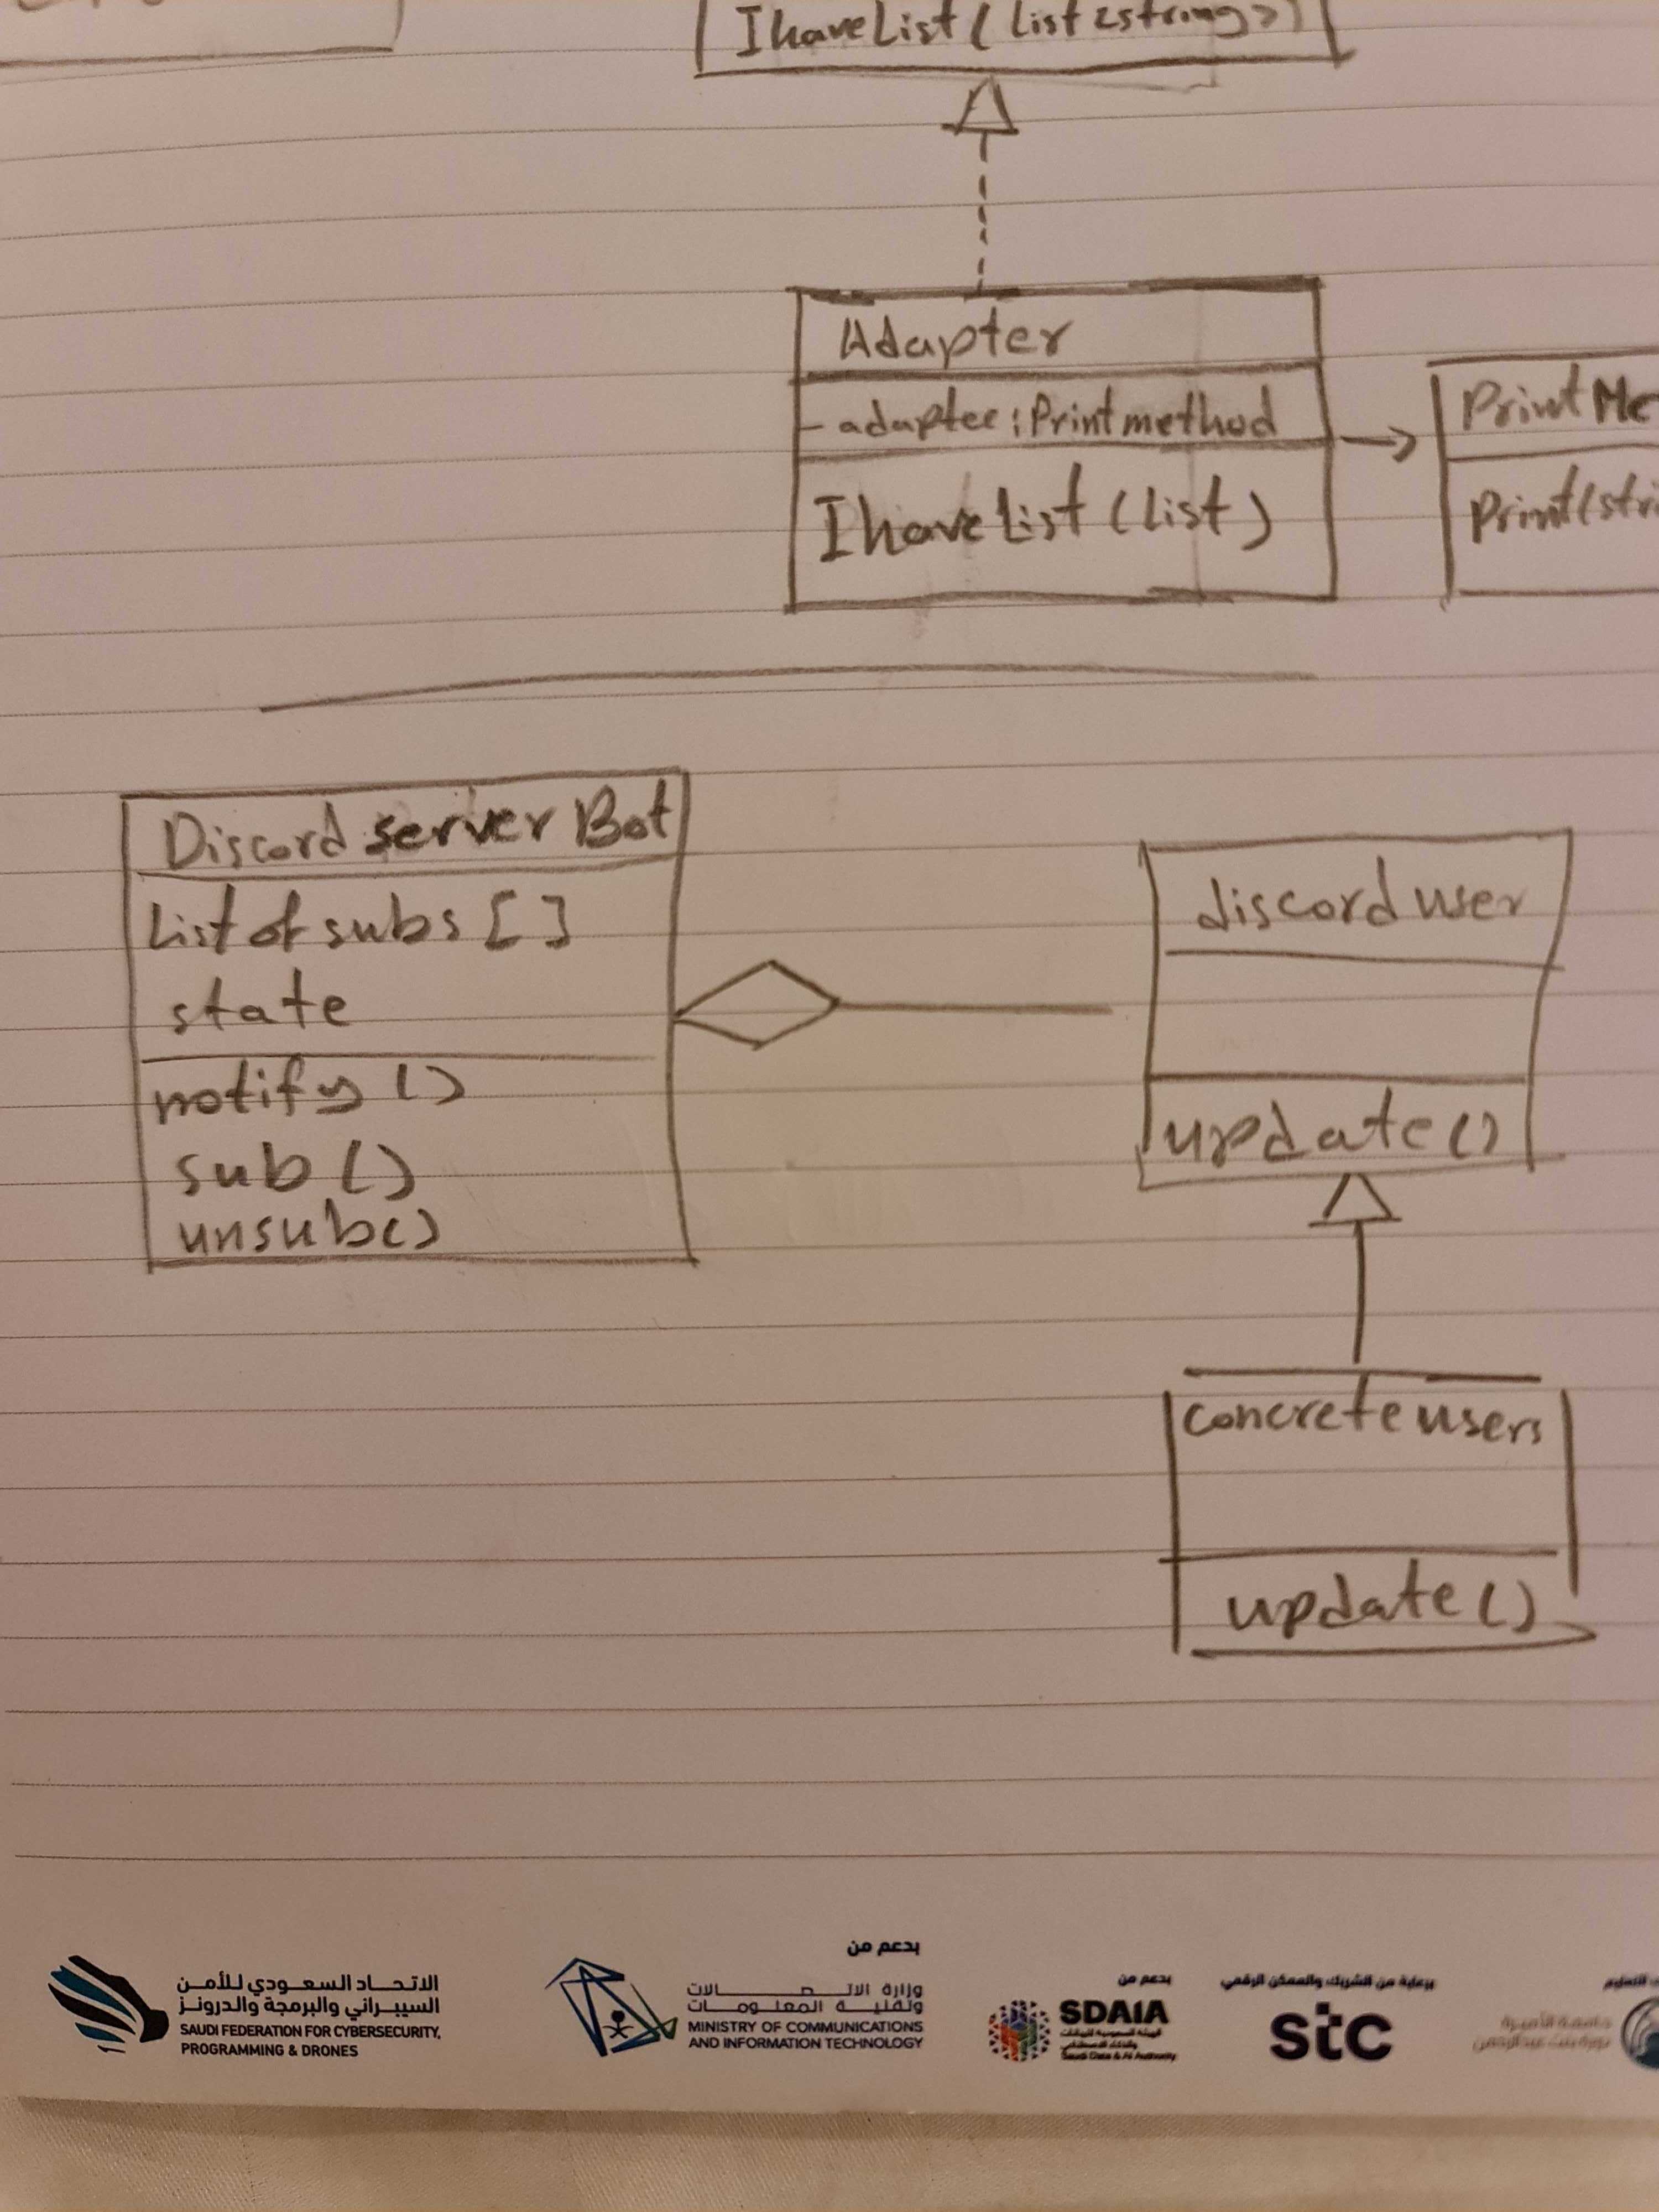 IhaveList ( List <string>)
Adapter
- adaptee : Print method
Ihave List (list)
Print
Print(
Discord server Bot
List of subs [ ]
state
notify ()
sub ()
unsub()
discord user
update ()
concrete users
update ()
بدعم من
الاتحاد السعودي للأمن
السيبراني والبرمجة والدرونز
SAUDI FEDERATION FOR CYBERSECURITY,
PROGRAMMING & DRONES
وزارة الاتصالات
وتقنية المعلومات
MINISTRY OF COMMUNICATIONS
AND INFORMATION TECHNOLOGY
بدعم من
SDAIA
Saudi Data & AI Authority
برعاية من الشريك والممكن الرقمي
stc
جامعة الأميرة
نورة بنت عبدالرحمن